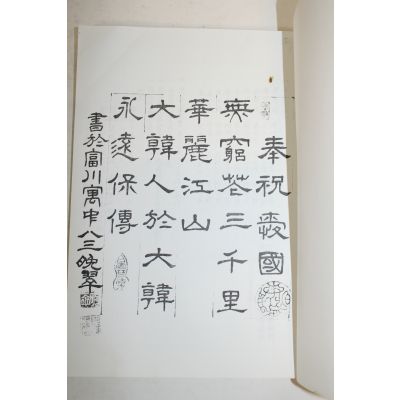 奉祝愛國
無窮花三千里
華麗江山
大韓人於大韓
永遠保傳
書於富川寓中八三晚翠